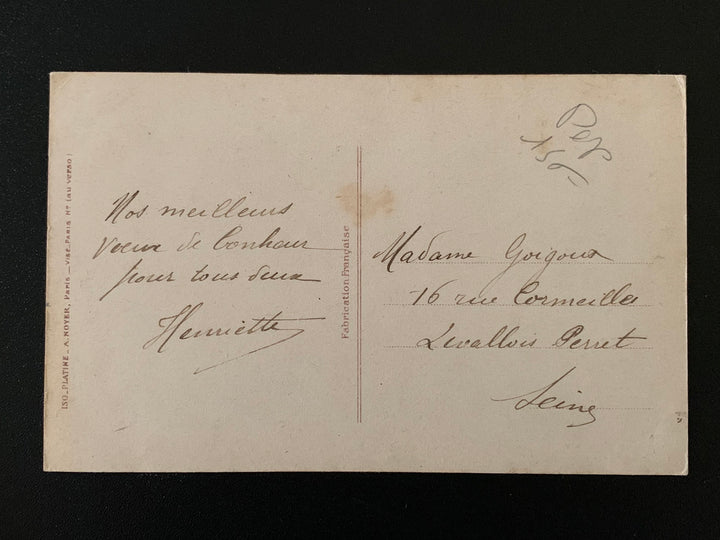 ISO_PLATINE _ A. NOYER, PARIS — VISÉ-PARIS N° (AU VERSO)
Nos meilleurs
voeux de bonheur
pour tous deux
Henriette
Fabrication Française
Madame Goigoux
16 rue Cormeilles
Levallois Perret
Seine